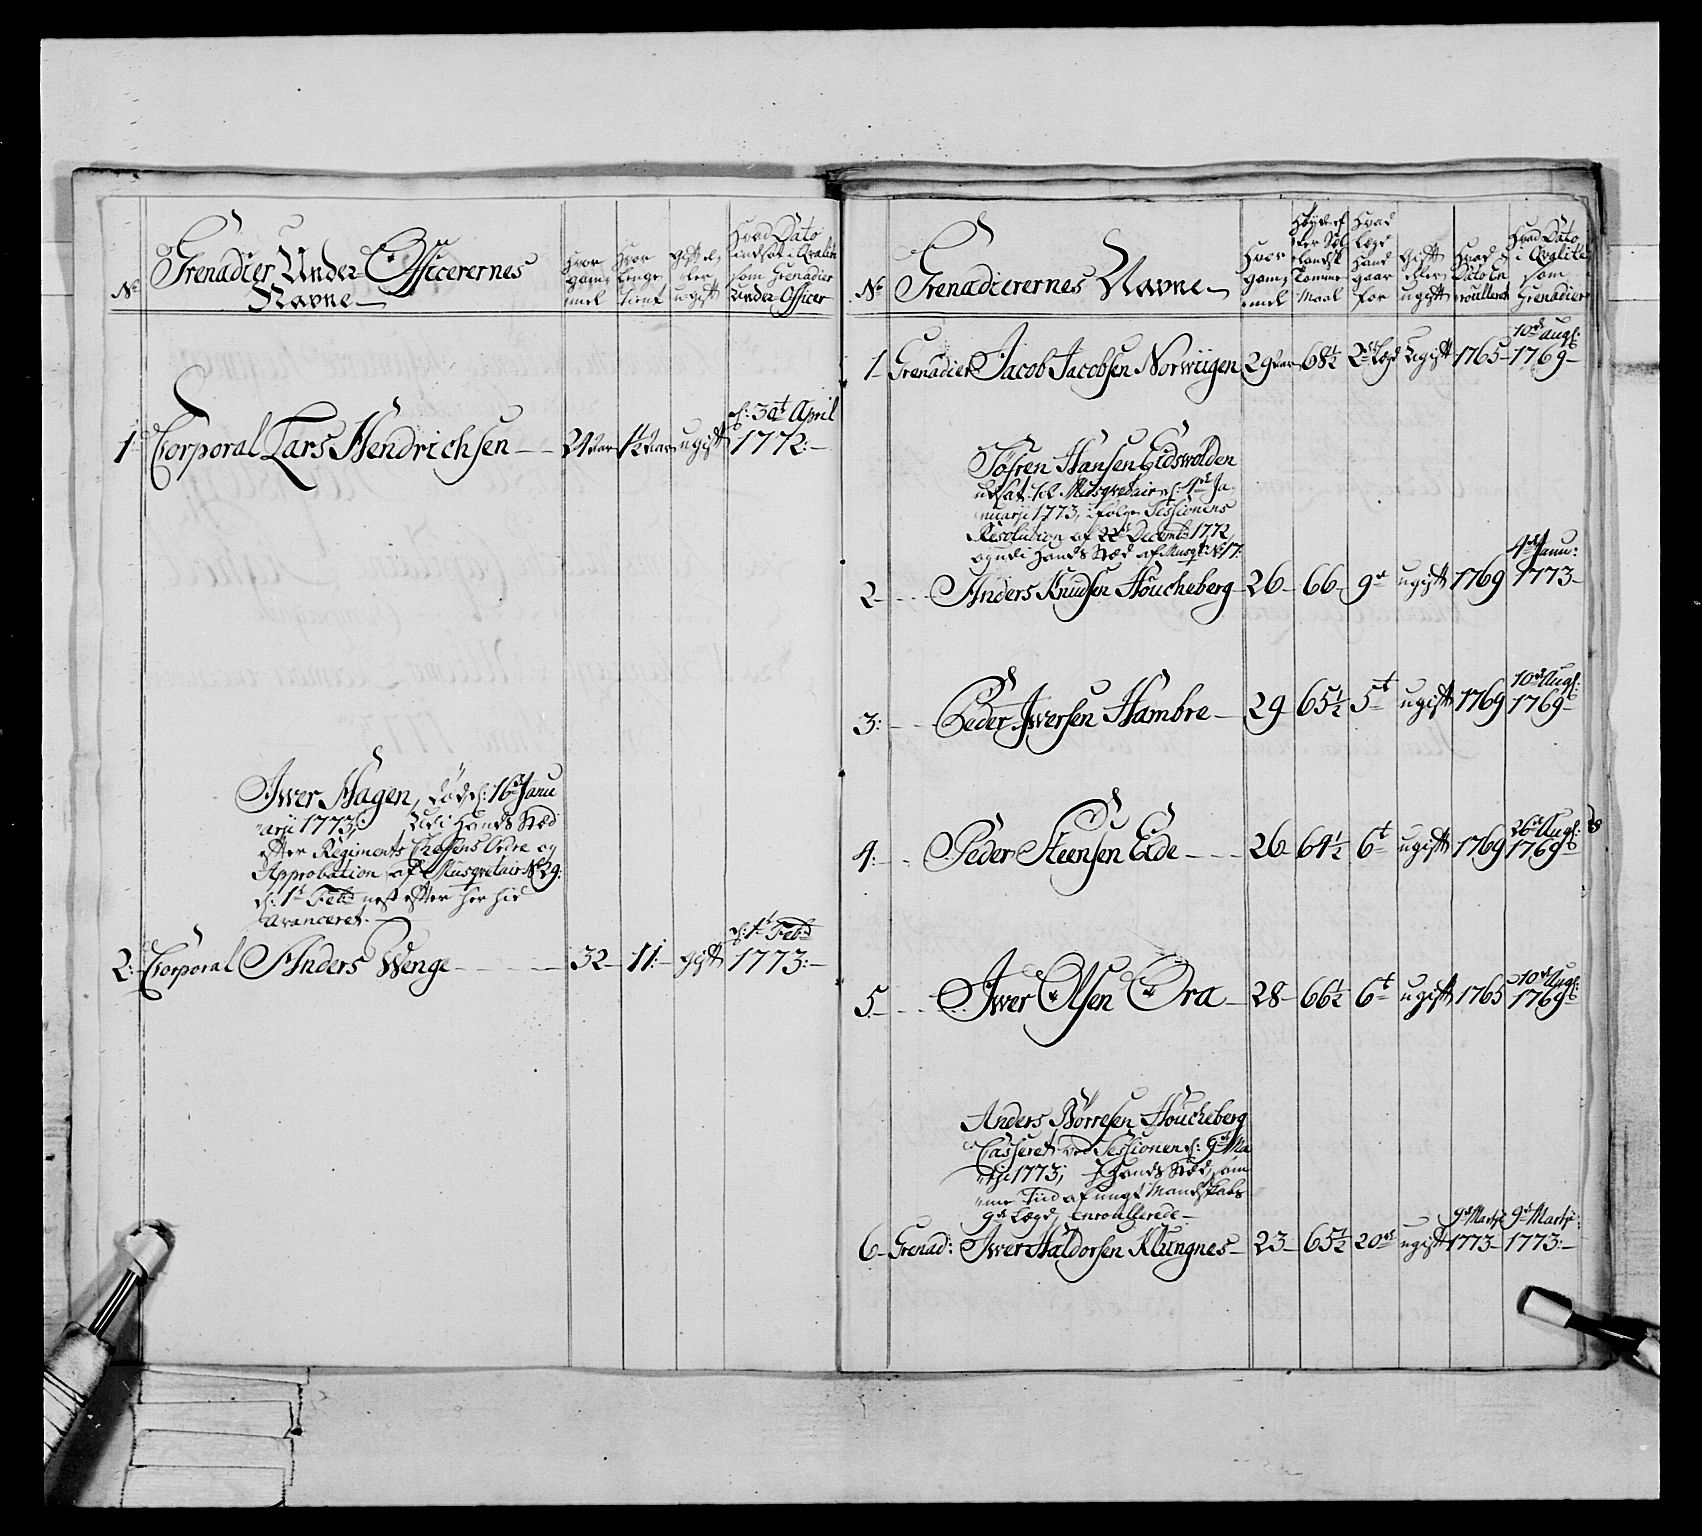 No
Grenadier Under Officerernes
Navne
Hvor gam̄el
Hvor lenge tient
gift eller ugift
Hvad Dato indsat i Qvalitet som Grenadier Under Officer
1 Corporal Lars Hendrichsen 24 aar 1½ aar ugift d: 30t April 1772:
Iwer Hagen, død d: 16de Janu
arii 1773, Udi Hands Stæd
efter Regiments Chefens Ordre og
Approbation af Musqvetair No 29:
d: 1t Febr nest efter her hid
Avanceret.
2: Corporal Anders Wenge 32 11: gift d: 1t Febr 1773:
No
Grenadierernes Navne
Hvor gam̄el
Høyde efter Siellandsk Tomme Maal
Hvad Lægd Hand gaar for
gift eller ugift
Hvad Dato Enroulleret
Hvad Dato i Qvalitet som Grenadier
1 Grenadier Jacob Jacobsen Norwiigen 29 aar 68½ 2det Lægd Ugift 1765 10de Aug: 1769
Søfren Hansen Eidswolden
udsat til Musqvetair d: 4de Ja
nuarji 1773, ifølge Sessionens
Resolution af 22de Decembr 1772,
og udi Hands Stæd af Musqt: No 17:
2 Anders Knudsen Houcheberg 26 66 9de ugift 1769 4de Janu: 1773
3: Peder Iwersen Hambre 29 65½ 5t ugift 1769 10de Aug: 1769
4: Peder Steensen Eide 26 64½ 6t ugift 1769 26de Aug: 1769
5 Iwer Olsen Ora 28 66½ 6t ugift 1765 10de Aug: 1769
Anders Børresen Houcheberg
Casseret ved Sessionen d: 9de Ma
rtji 1773, I Hands Stæd, sam
me Tiid af ungt Mandskabs
9de Lægd, enroullerede
6 Grenad: Iwer Haldorsen Klungnes 23 65½ 20de ugift 9de Martji 1773 9de Martji: 1773: